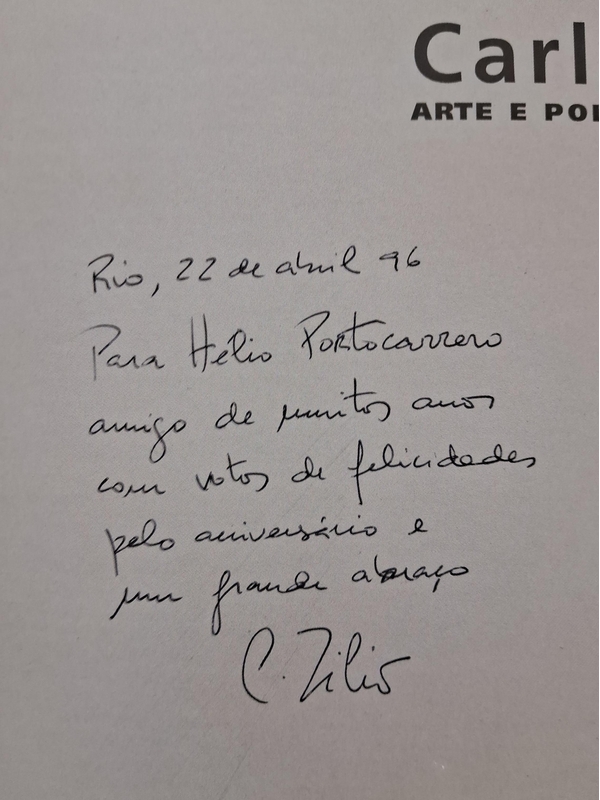 Carl
ARTE E POL
Rio, 22 de abril 96
Para Hélio Portocarrero
amigo de muitos anos
com votos de felicidades
pelo aniversário e
um grande abraço
C. Zilio